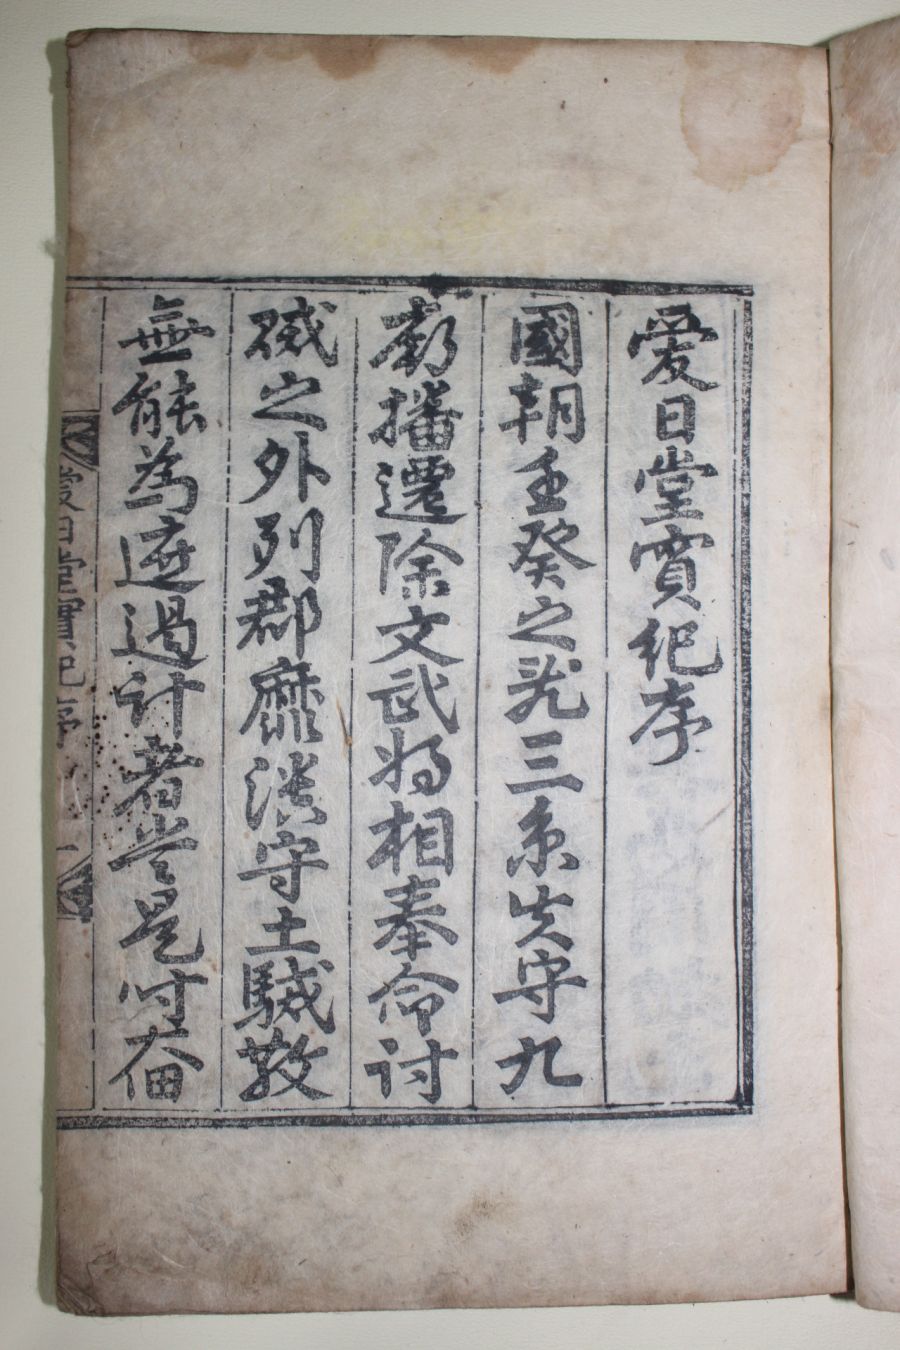 愛日堂實紀序
國朝壬癸之 三京失守九
廟播遷除文武將相奉命討
賊之外列郡靡潰守土駴散
無能爲遮遏計者當是時奮
愛日堂實紀序 一